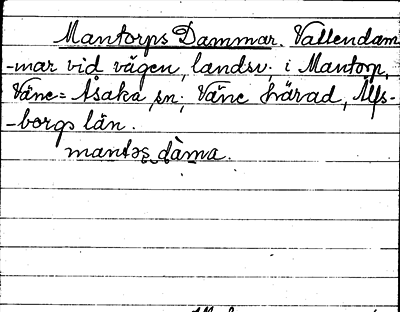 Mantorps Dammar. Vattendam-
-mar vid vägen, landsv. i Mantorp,
Väne-Åsaka sn; Väne härad, Älfs-
-borgs län.
mantəs dàma.